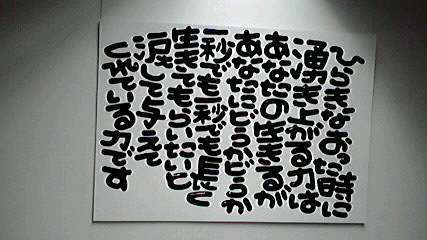 ひらきなおった時に
湧き上がる力は
あなたの生きるが
あなたにどうかどうか
一秒でも一秒でも長く
生きてもらいたいと
涙をして与えて
くれている力です